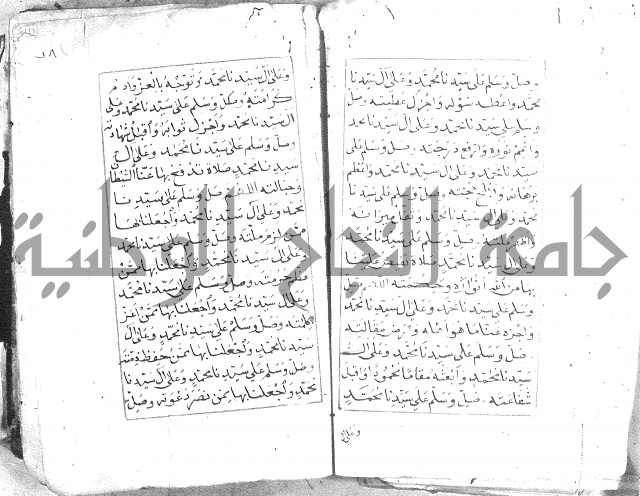 وصل وسلم على سيدنا محمد وعلى ال سيدنا
محمد واعطه سؤله واجزل عطيته وصل
وسلم على سيدنا محمد وعلى ال سيدنا محمد
واتمم نوره وارفع درجته وصل وسلم على
سيدنا محمد وعلى ال سيدنا محمد وعظم
برهانه حجته وصل وسلم على سيدنا
محمد وعلى ال سيدنا محمد وثقل ميزانه
ملته وصل وسلم على سيدنا محمد
وعلى ال سيدنا محمد صلاة
بها من الله
وسلم على سيدنا محمد وعلى ال سيدنا محمد
واجزه عنا ما هو اهله وارض مقالته
وصل وسلم على سيدنا محمد وعلى ال
سيدنا محمد وابعثه مقاما محمودا واقبل
شفاعته وصل وسلم على سيدنا محمد
وعلى
وعلى ال سيدنا محمد وتوجه بالعز وادم
كرامته وصل وسلم على سيدنا محمد وعلى
ال سيدنا محمد واجزل ثوابه واقبل شهادته
وصل وسلم على سيدنا محمد وعلى ال
سيدنا محمد صلاة تدفع بها عنا الشيطان
اللهم وصل وسلم على سيدنا
محمد وعلى ال سيدنا محمد واجعلنا بها
ممن لزم ملته وصل وسلم على سيدنا محمد
وعلى ال سيدنا محمد واجعلنا بها ممن
عظم حرمته وصل وسلم على سيدنا محمد
وعلى ال سيدنا محمد واجعلنا بها ممن اعز
كلمته وصل وسلم على سيدنا محمد وعلى ال
سيدنا محمد واجعلنا بها ممن حفظ ذمته
وصل وسلم على سيدنا محمد وعلى ال سيدنا
محمد واجعلنا بها ممن نصر دعوته وصل
جامعة النجاح الوطنية